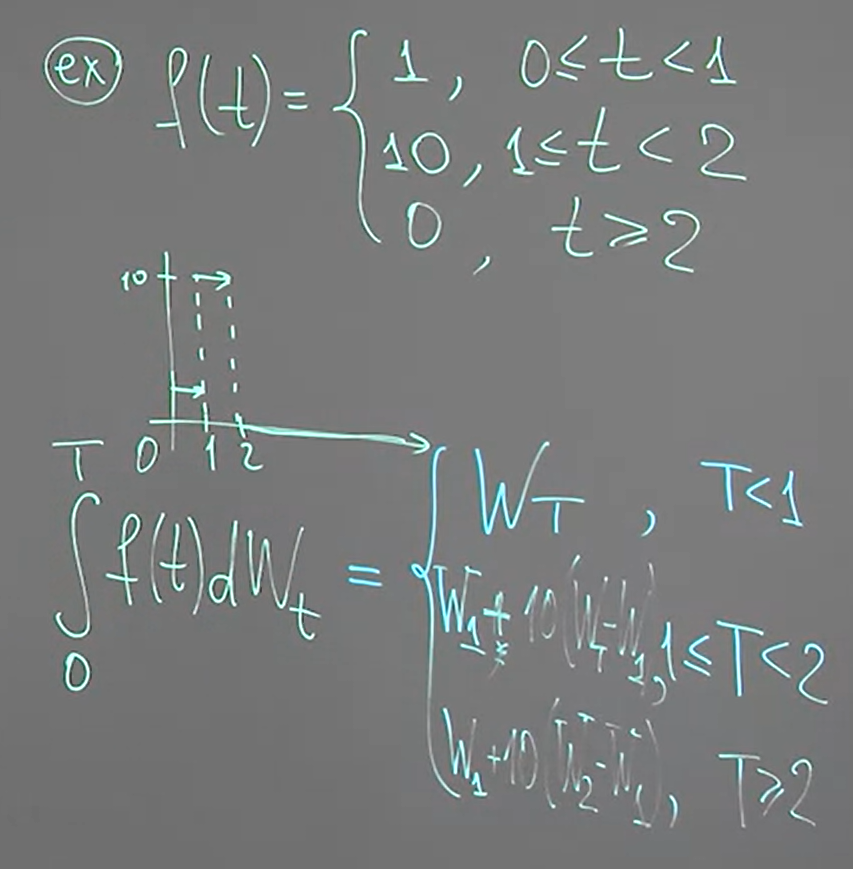 ex f(t) = { 1, 0 ≤ t < 1
10, 1 ≤ t < 2
0, t ≥ 2
10
0 1 2
∫₀ᵀ f(t)dW_t = { W_T, T<1
W₁ + 10(W_T - W₁), 1 ≤ T < 2
W₁ + 10(W₂ - W₁), T ≥ 2